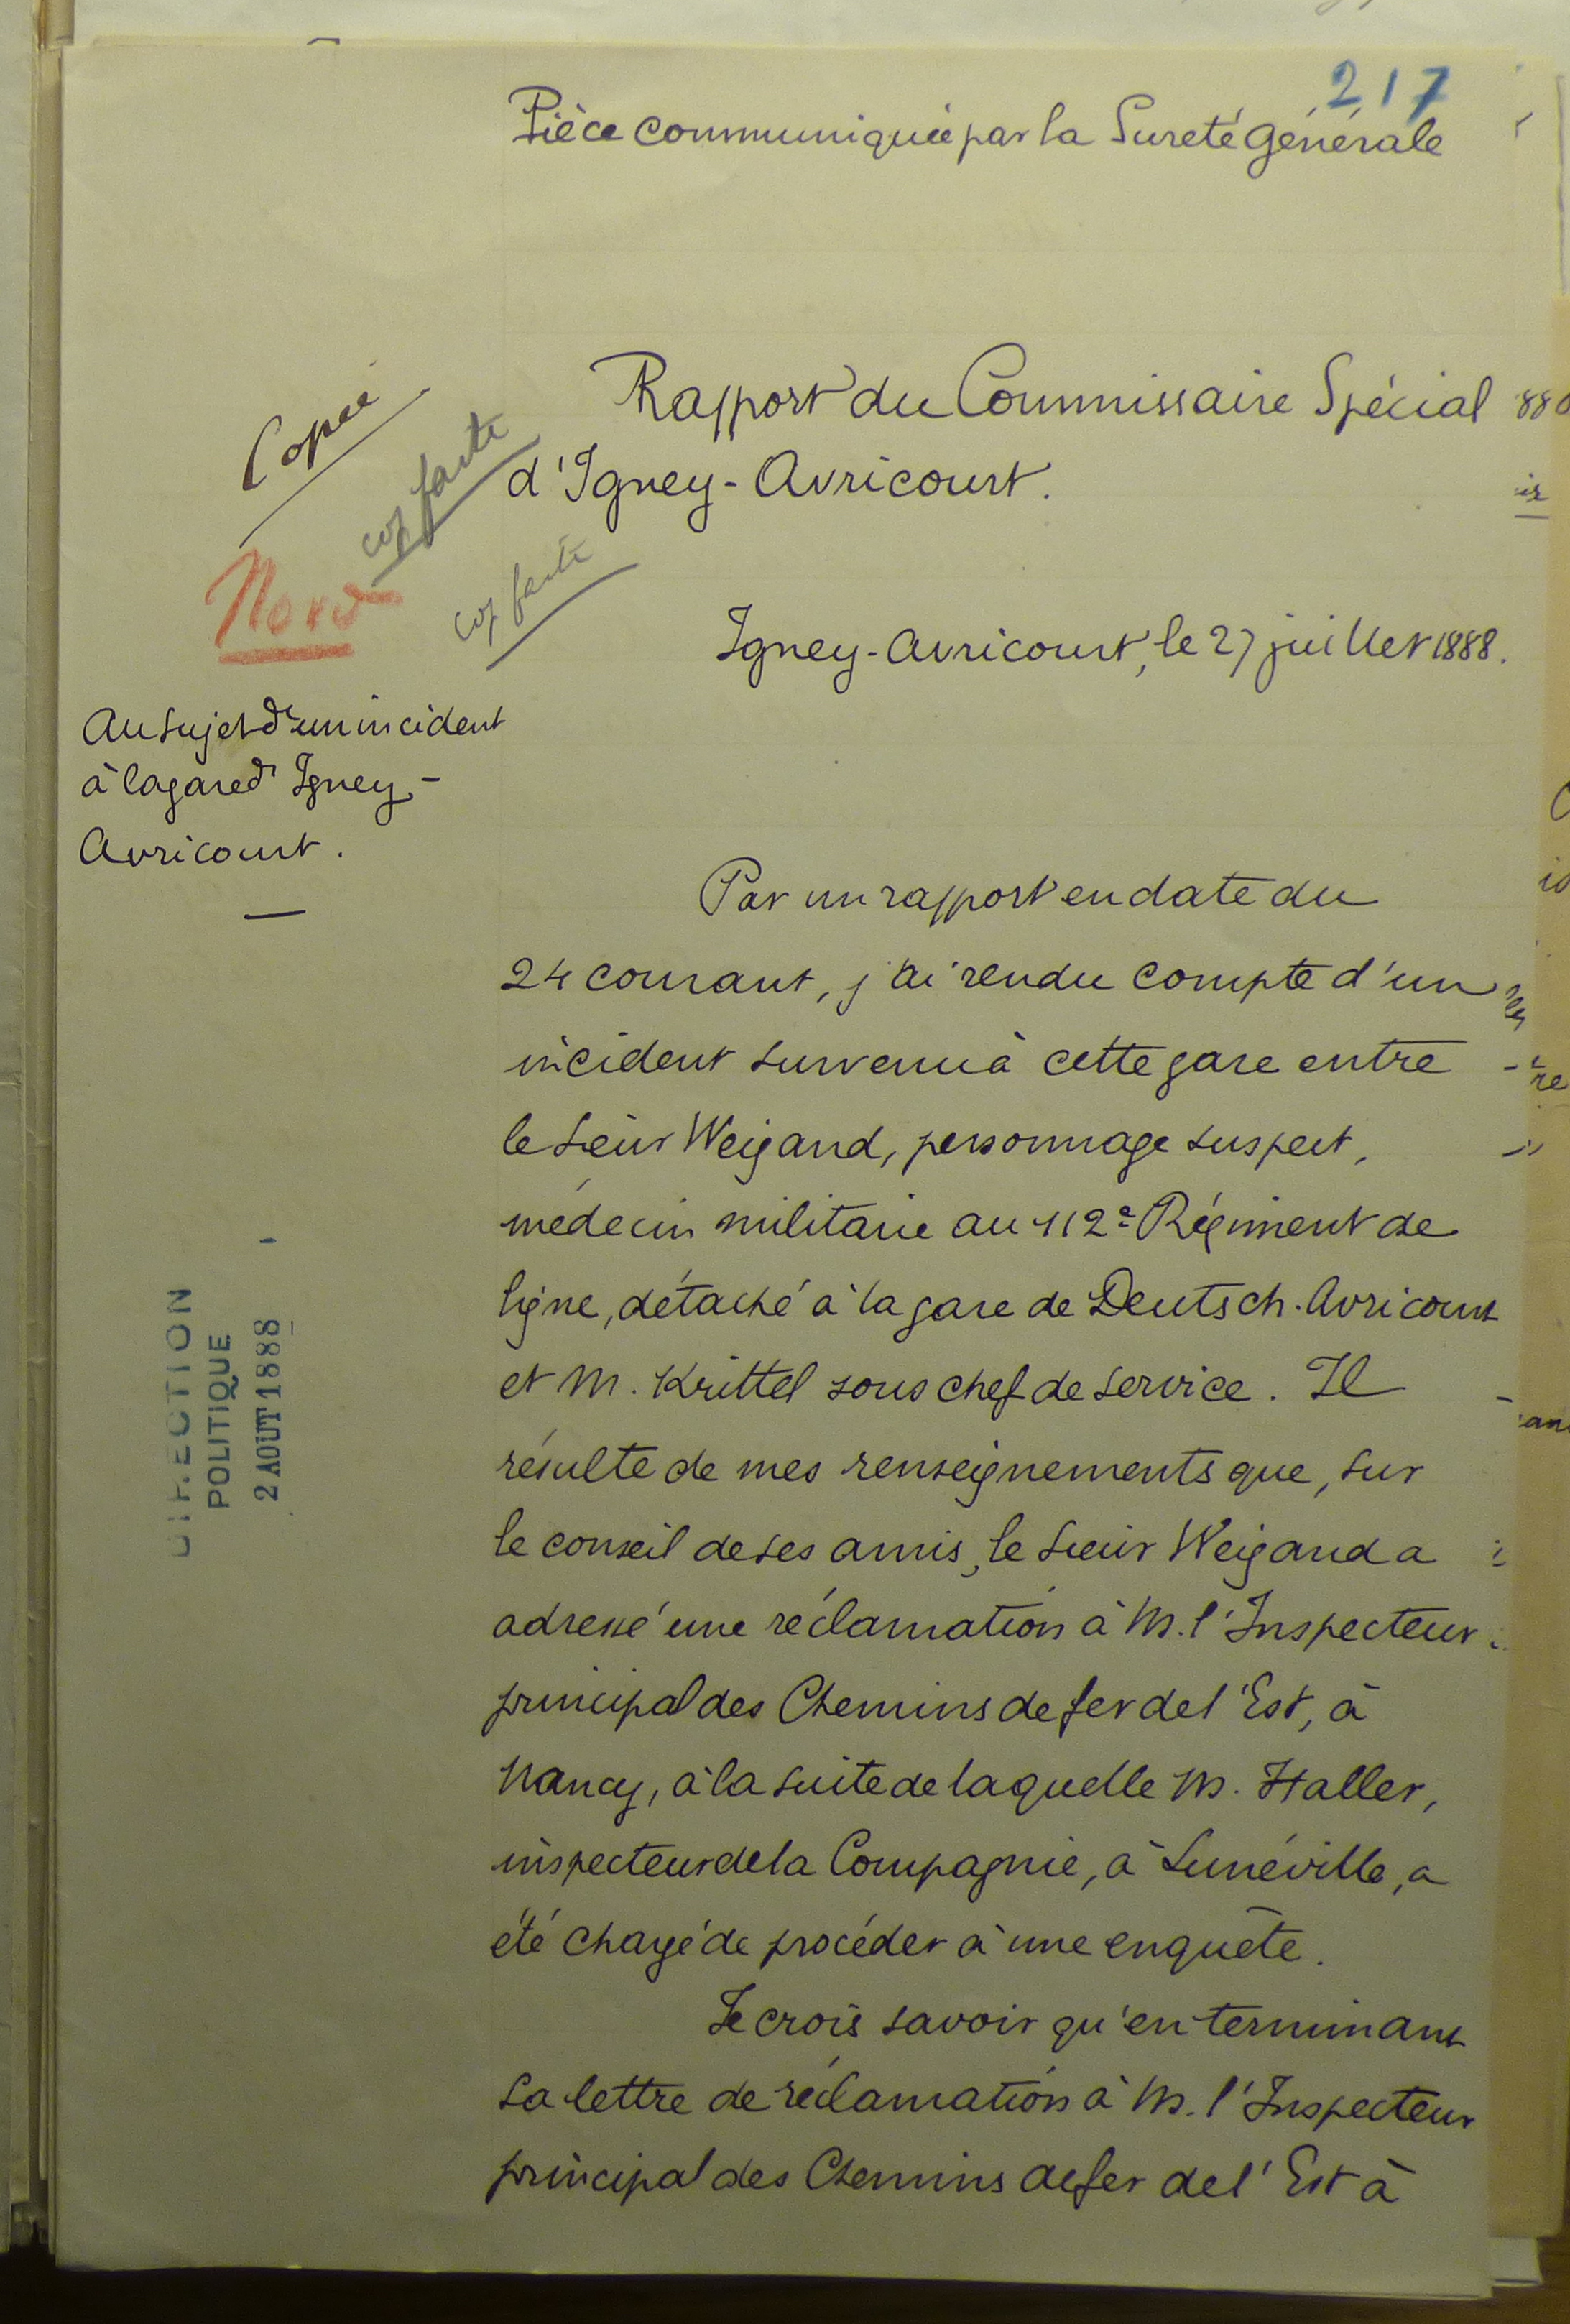 217
Pièce communiquée par la Sureté générale
Rapport du Commissaire Spécial
d'Igney-Avricourt.
Copie
cop faite
cop faite
Nord
Igney-Avricourt, le 27 juillet 1888.
Au sujet d'un incident
à la gare d'Igney-
Avricourt.
Par un rapport en date du
24 courant, j'ai rendu compte d'un
incident survenu à cette gare entre
le sieur Weigand, personnage suspect,
médecin militaire au 112e Régiment de
ligne, détaché à la gare de Deutsch-Avricourt
et M. Krittel sous chef de service. Il
résulte de mes renseignements que, sur
le conseil de ses amis, le sieur Weigand a
adressé une réclamation à M. l'Inspecteur
principal des Chemins de fer de l'Est, à
Nancy, à la suite de laquelle M. Haller,
inspecteur de la Compagnie, à Lunéville, a
été chargé de procéder à une enquête.
Je crois savoir qu'en terminant
sa lettre de réclamation à M. l'Inspecteur
principal des Chemins de fer de l'Est à
DIRECTION
POLITIQUE
2 AOUT 1888